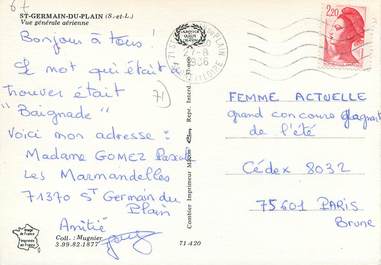 67
ST-GERMAIN-DU-PLAIN (S.-et-L.)
Vue générale aérienne
Bonjour à tous !
Le mot qui était à
trouver était
"Baignade"
71
Voici mon adresse :
Madame GOMEZ
Les Marmandelles
71370 ST Germain du
Plain
Amitié
Coll. : Mugnier
3.99.82.1877
71-420
Combier Imprimeur Mâcon
Repr. Interd.
2,20
FEMME ACTUELLE
grand concours gagnant
de l'été
Cédex 8032
75601 PARIS
Brune